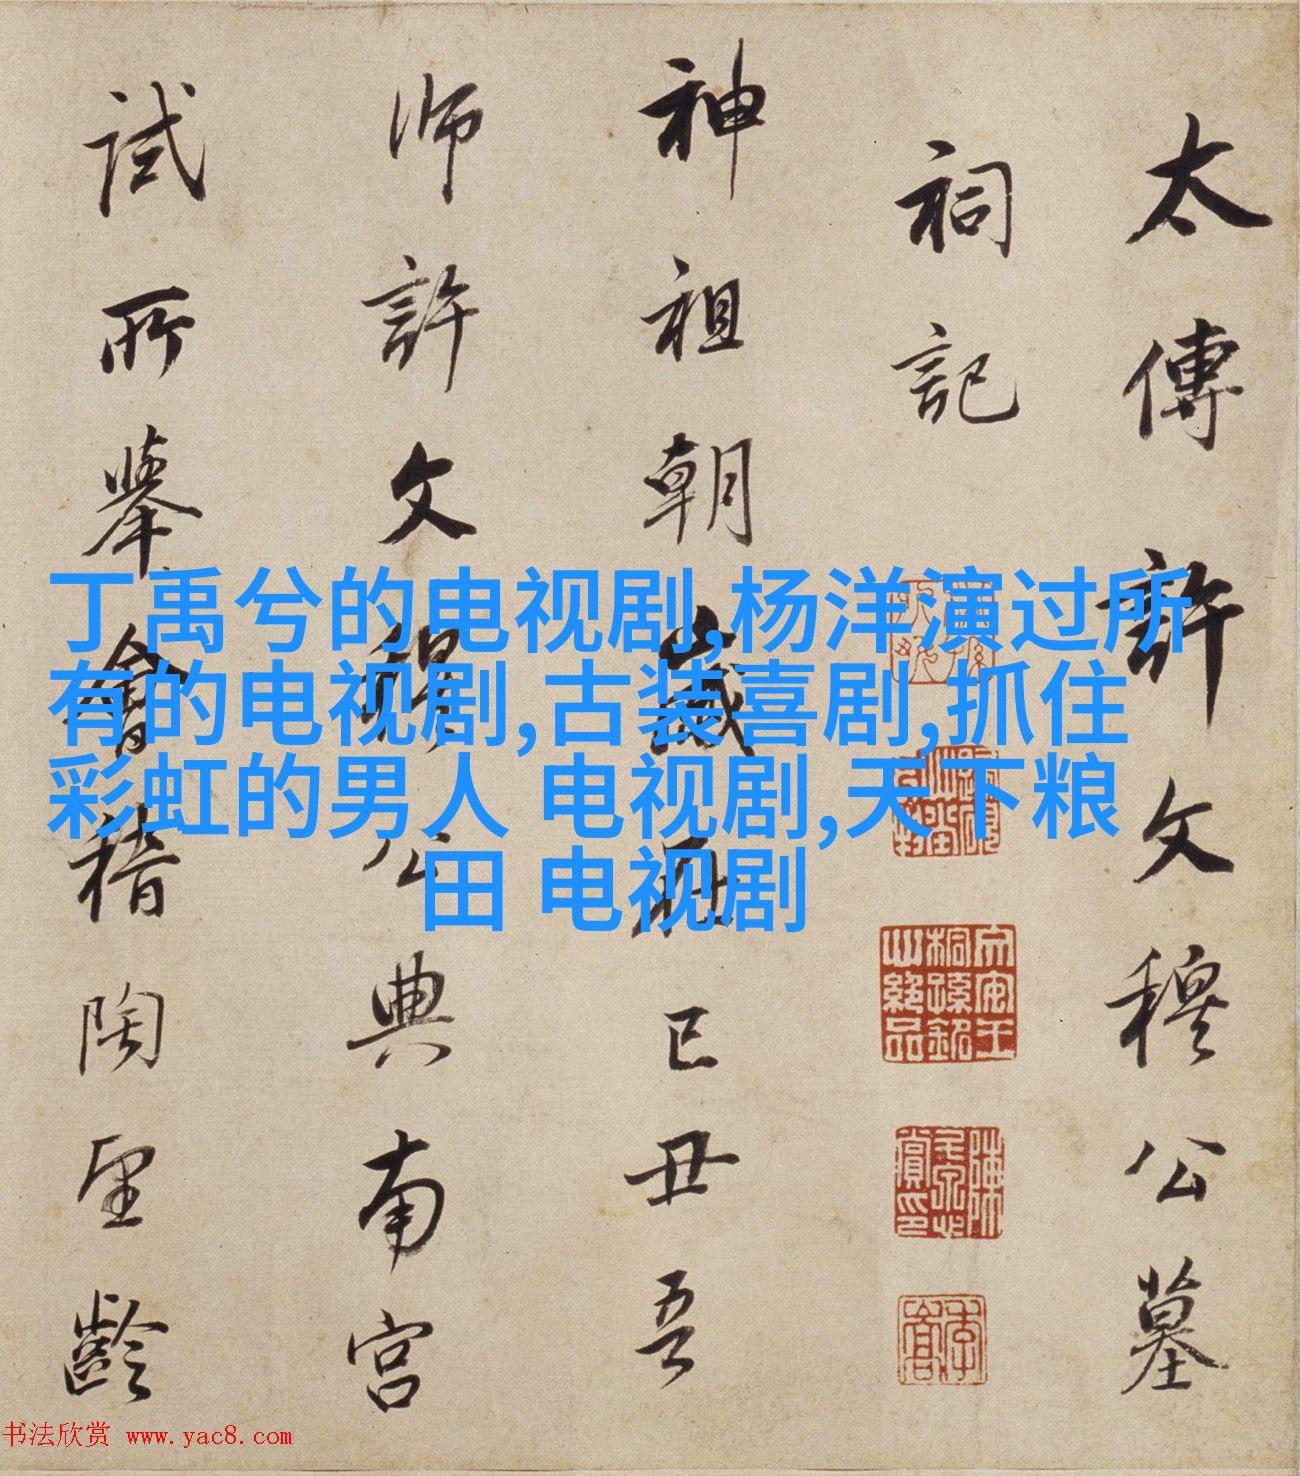 太傅許文穆公墓
祠記
神祖朝歲在已丑吾
師許文穆公典南宮
試所舉會稽陶望齡
丁禹兮的电视剧,杨洋演过所
有的电视剧,古装喜剧,抓住
彩虹的男人 电视剧,天下粮
田 电视剧
书法欣赏 www.yac8.com